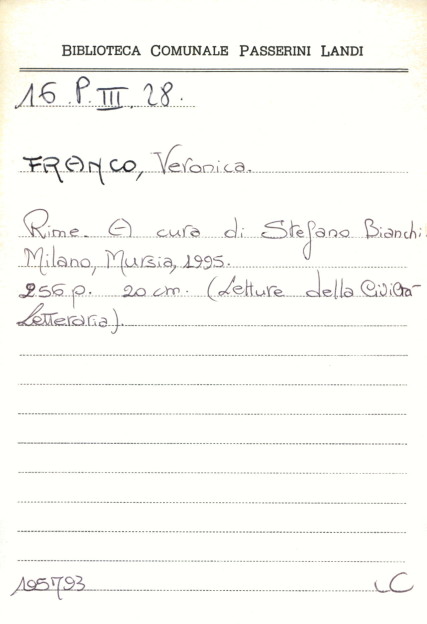 BIBLIOTECA COMUNALE PASSERINI LANDI
16. P. III. 28.
FRANCO, Veronica.
Rime. A cura di Stefano Bianchi.
Milano, Mursia, 1995.
256 p. 20 cm. (Letture della Civiltà
Letteraria).
195793 LC